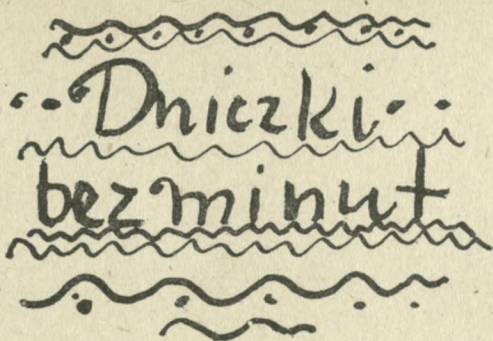 Dniczki
bez minut